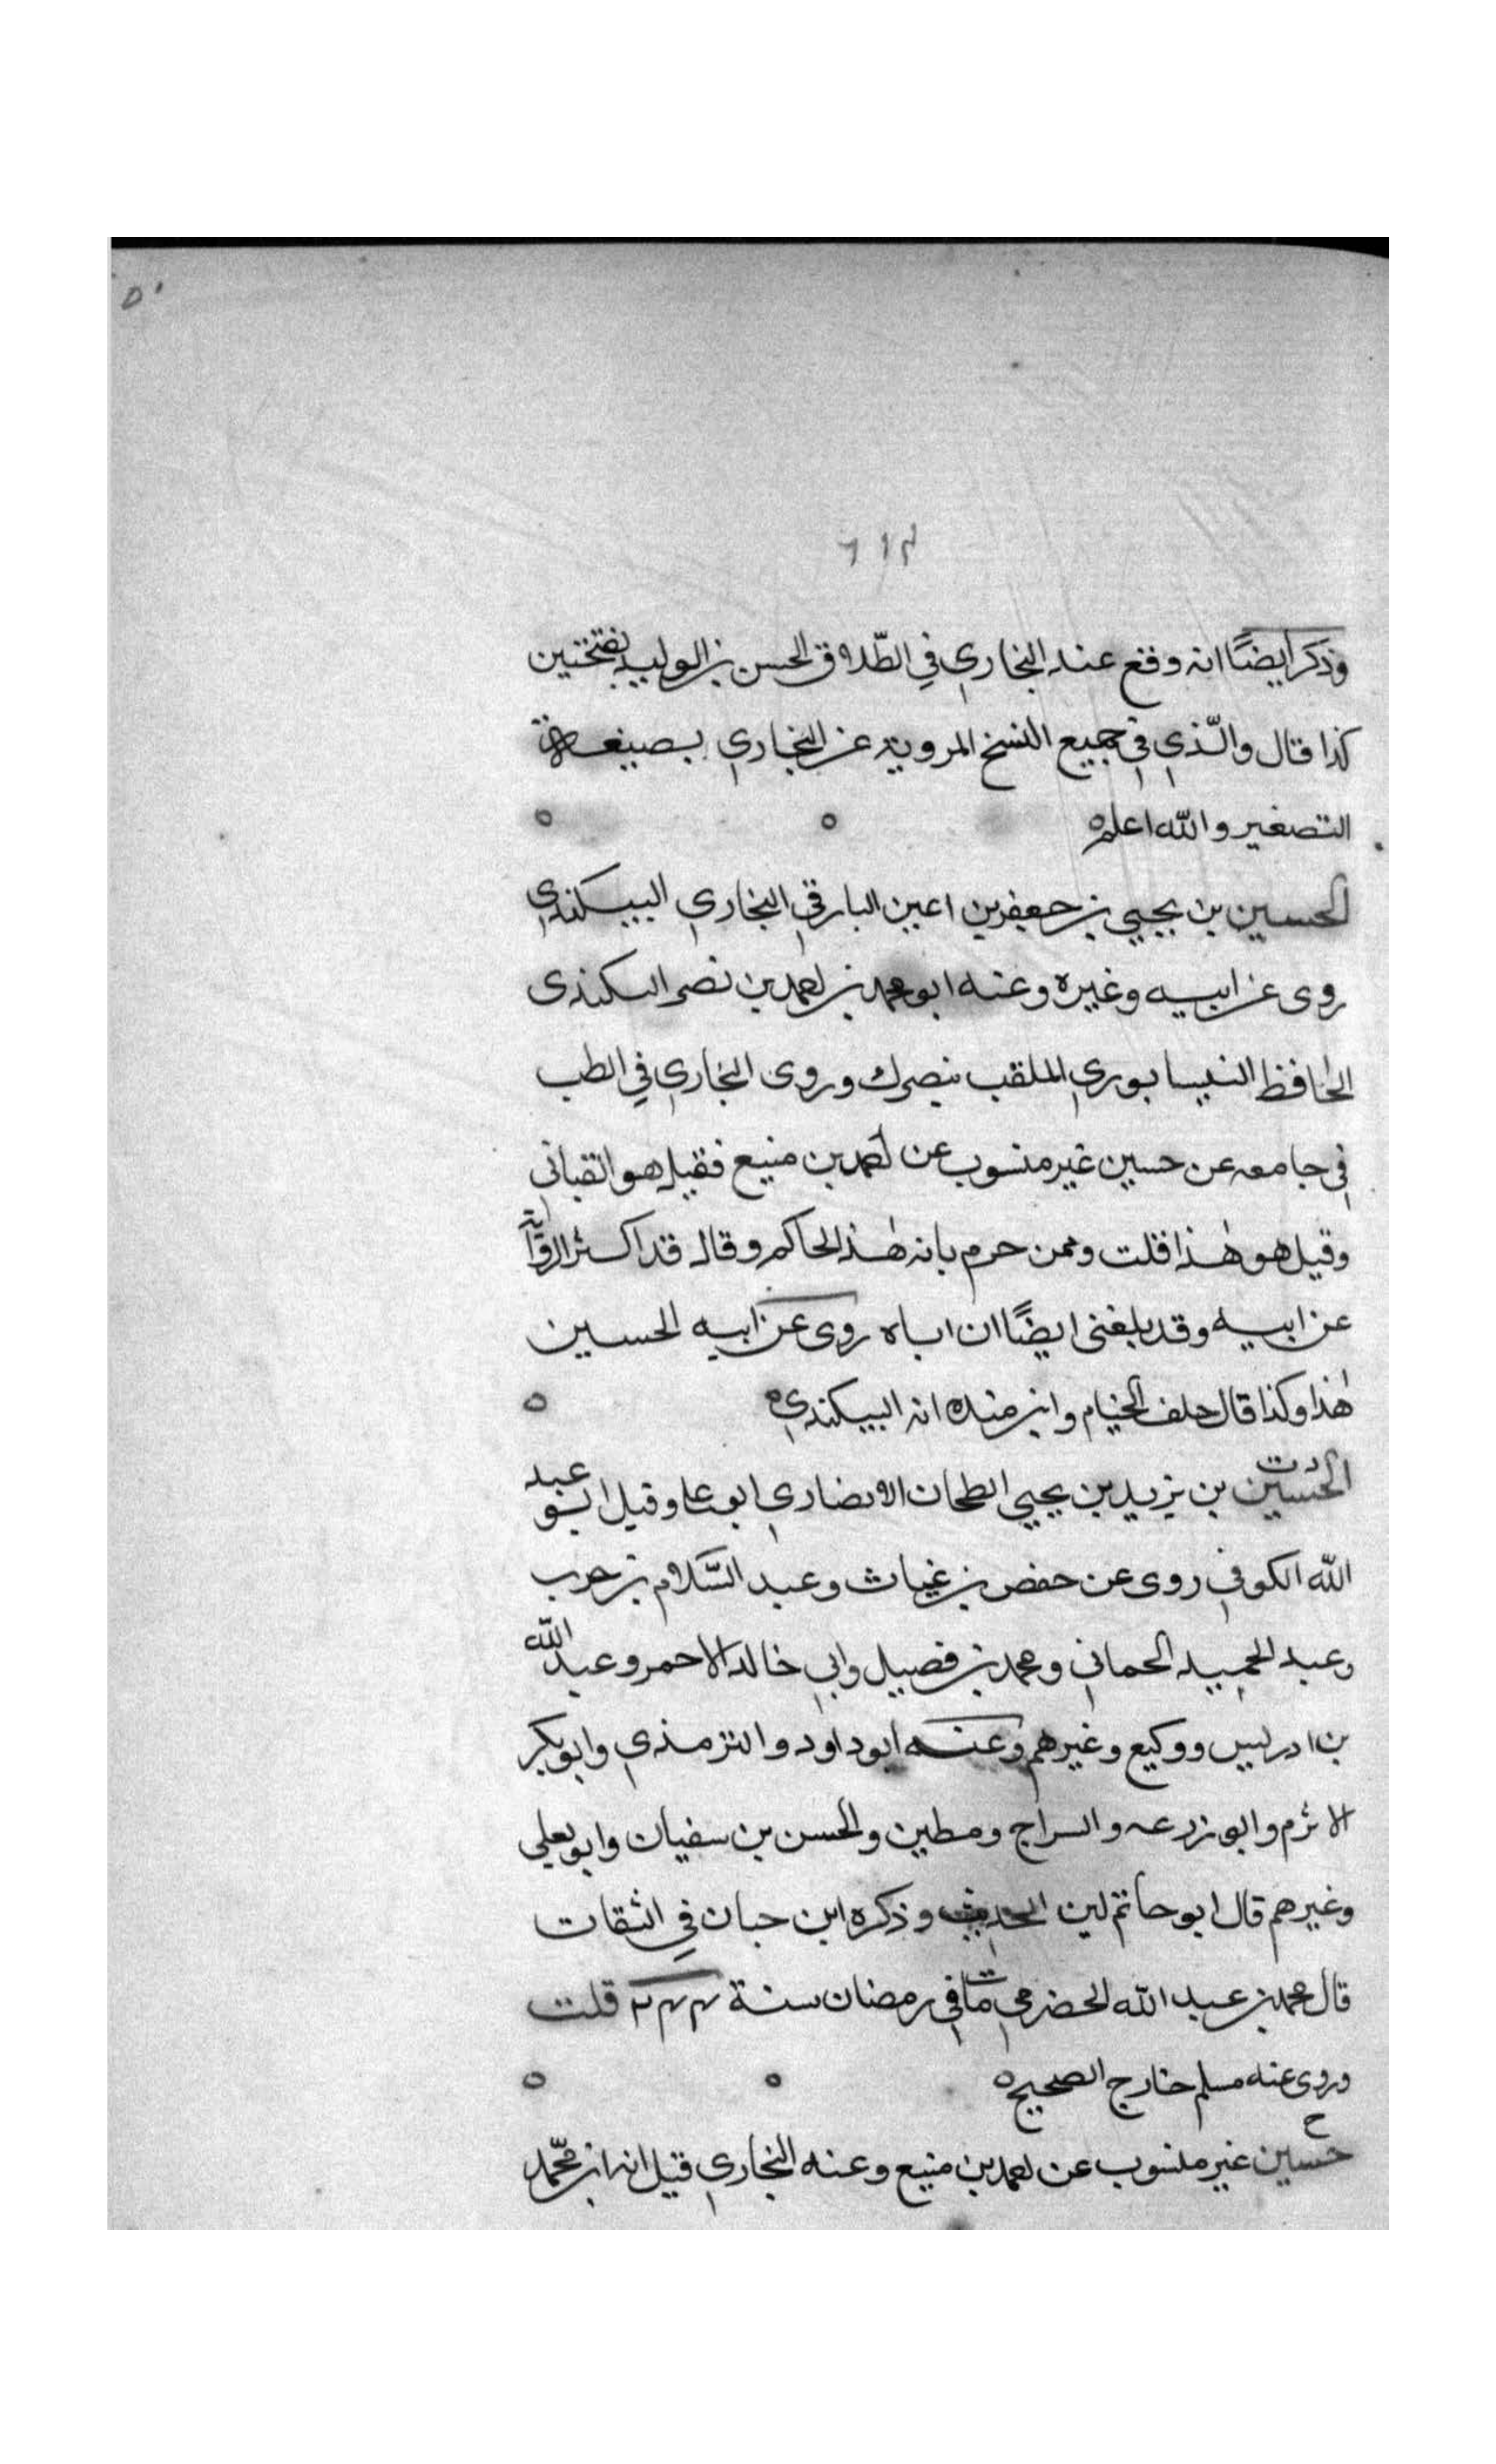 ٥٠
٦١٢
وذكر ايضًا انه وقع عند البخاري في الطّلاق الحسن بن الوليد بفتحتين
كذا قال والّذي في جميع النسخ المروية عن البخاري بصيغة
التصغير والله اعلم ه
الحسين بن يحيي بن جعفر بن اعين البارقي البخاري البيكندي
روى عن ابيه وغيره وعنه ابو محمد بن احمد بن نصر السكندى
الحافظ النيسابوري الملقب بنصرك وروى البخاري في الطب
في جامعه عن حسين غير منسوب عن احمد بن منيع فقيل هو القباني
وقيل هو هٰذا قلت وممن حرم بانه هٰذا الحاكم وقال قد اكثر الرواية
عن ابيه وقد بلغنى ايضًا ان اباه روى عن ابيه الحسين
هٰذا وكذا قال خلف الخيام وابن منده انه البيكندي ه
د ت
الحسين بن يزيد بن يحيي الطحان الانصاري ابو علي وقيل ابو عبد
الله الكوفي روى عن حفص بن غياث وعبد السّلام بن حرب
وعبد الحميد الحماني ومحمد بن فضيل وابي خالد الاحمر وعبد الله
بن ادريس ووكيع وغيرهم وعنه ابو داود والترمذي وابو بكر
الاثرم وابو زرعه والسراج ومطين والحسن بن سفيان وابو يعلي
وغيرهم قال ابو حاتم لين الحديث وذكره ابن حبان في الثقات
قال محمد بن عبد الله الحضرمي مات في رمضان سنة ٢٤٤ قلت
وروى عنه مسلم خارج الصحيح ه
خ
حسين غير منسوب عن احمد بن منيع وعنه البخاري قيل انه ابن محمّد